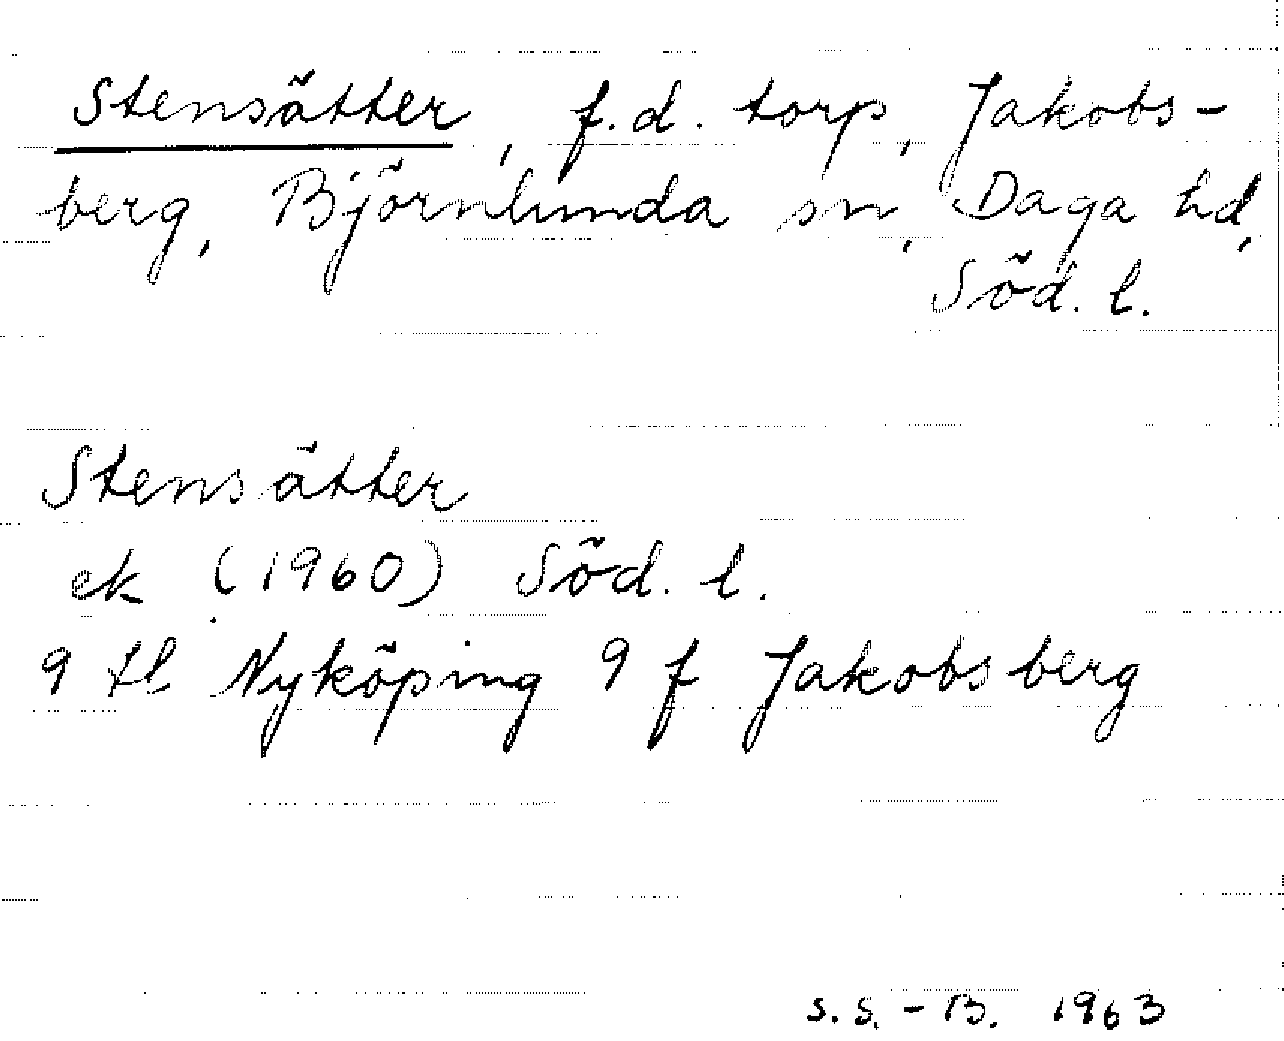 Stensätter, f.d. torp, Jakobs-
berg, Björnlunda sn, Daga hd,
Söd. l.
Stensätter
ek (1960) Söd. l.
9 tl Nyköping 9 f Jakobsberg
S.S.-B. 1963